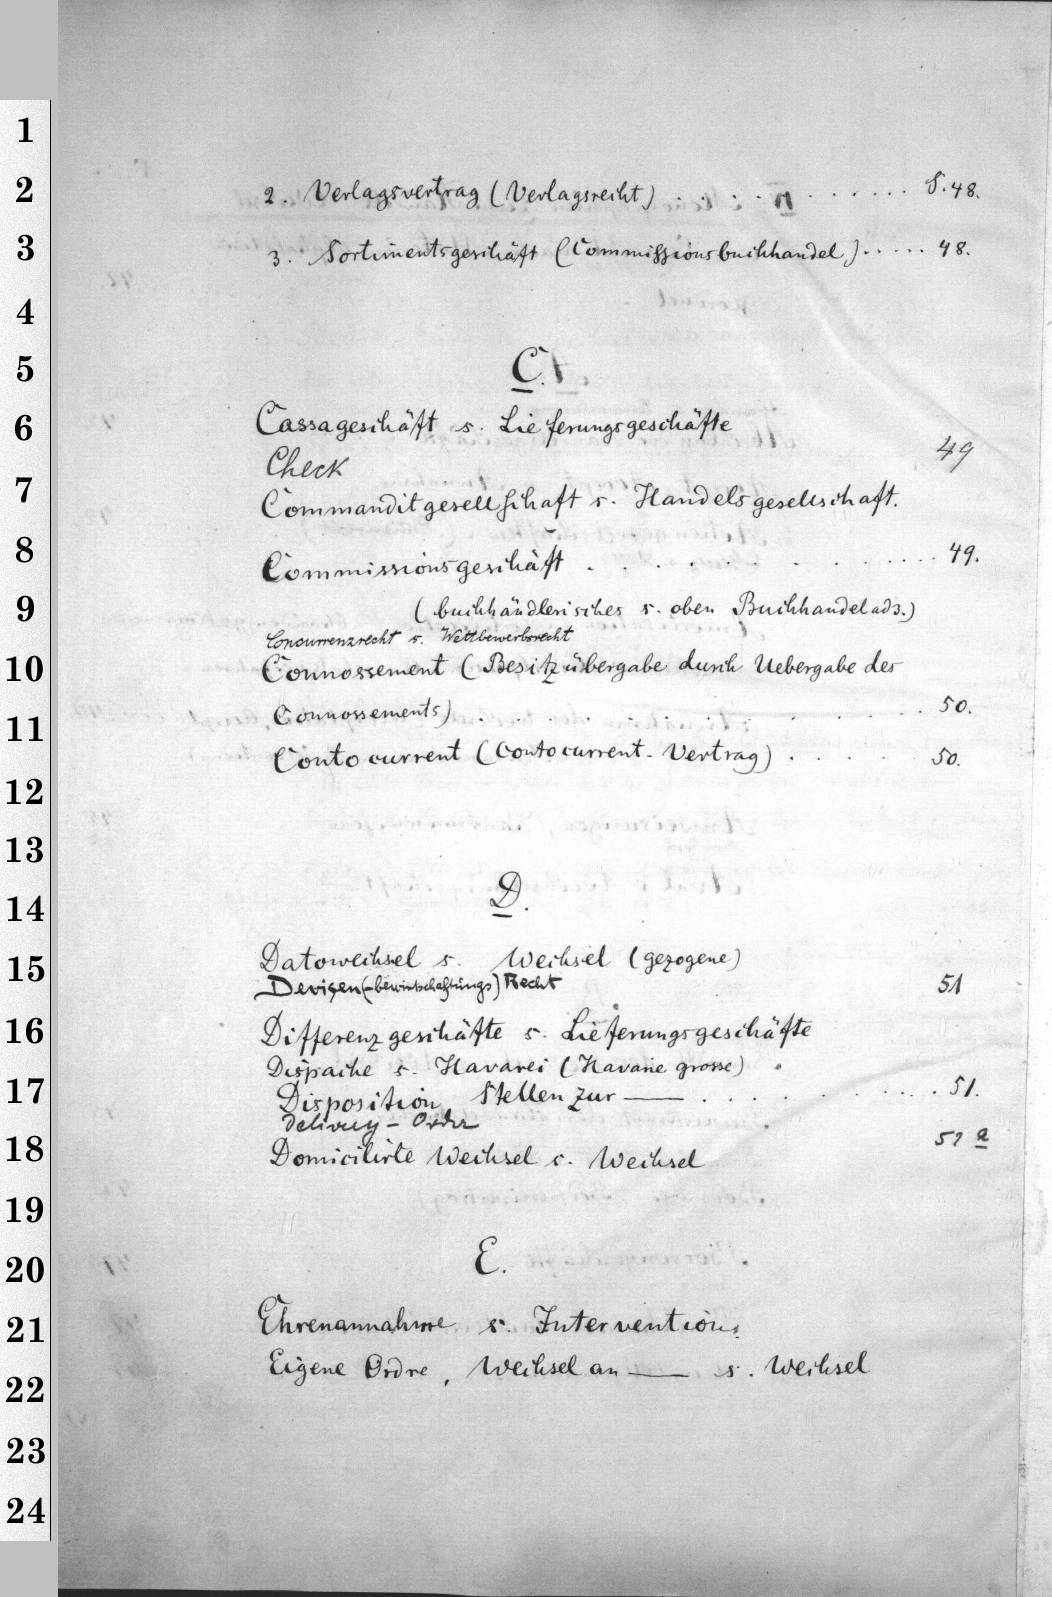 1
2
3
4
5
6
7
8
9
10
11
12
13
14
15
16
17
18
19
20
21
22
23
24
2. Verlagsvertrag (Verlagsrecht) . . . . . . . . . . . S. 48.
3. Sortimentsgeschäft (Commissionsbuchhandel) . . . . . 48.
C.
Cassageschäft s. Lieferungsgeschäfte
Check 49
Commanditgesellschaft s. Handelsgesellschaft.
Commissionsgeschäft . . . . . . . . . . . . 49.
(buchhändlerisches s. oben Buchhandel ad 3.)
Concurrenzrecht s. Wettbewerbsrecht
Connossement (Besitzübergabe durch Uebergabe des
Connossements) . . . . . . . . . . . 50.
Contocurrent (Contocurrent-Vertrag) . . . . . 50.
D.
Datowechsel s. Wechsel (gezogene)
Devisen(-bewirtschaftungs) Recht 51
Differenzgeschäfte s. Lieferungsgeschäfte
Dispache s. Havarei (Havarie grosse)
Disposition Stellen zur — . . . . . . . . . 51.
Delivery-Order 51 a
Domicilirte Wechsel s. Wechsel
E.
Ehrenannahme s. Intervention.
Eigene Ordre, Wechsel an — s. Wechsel